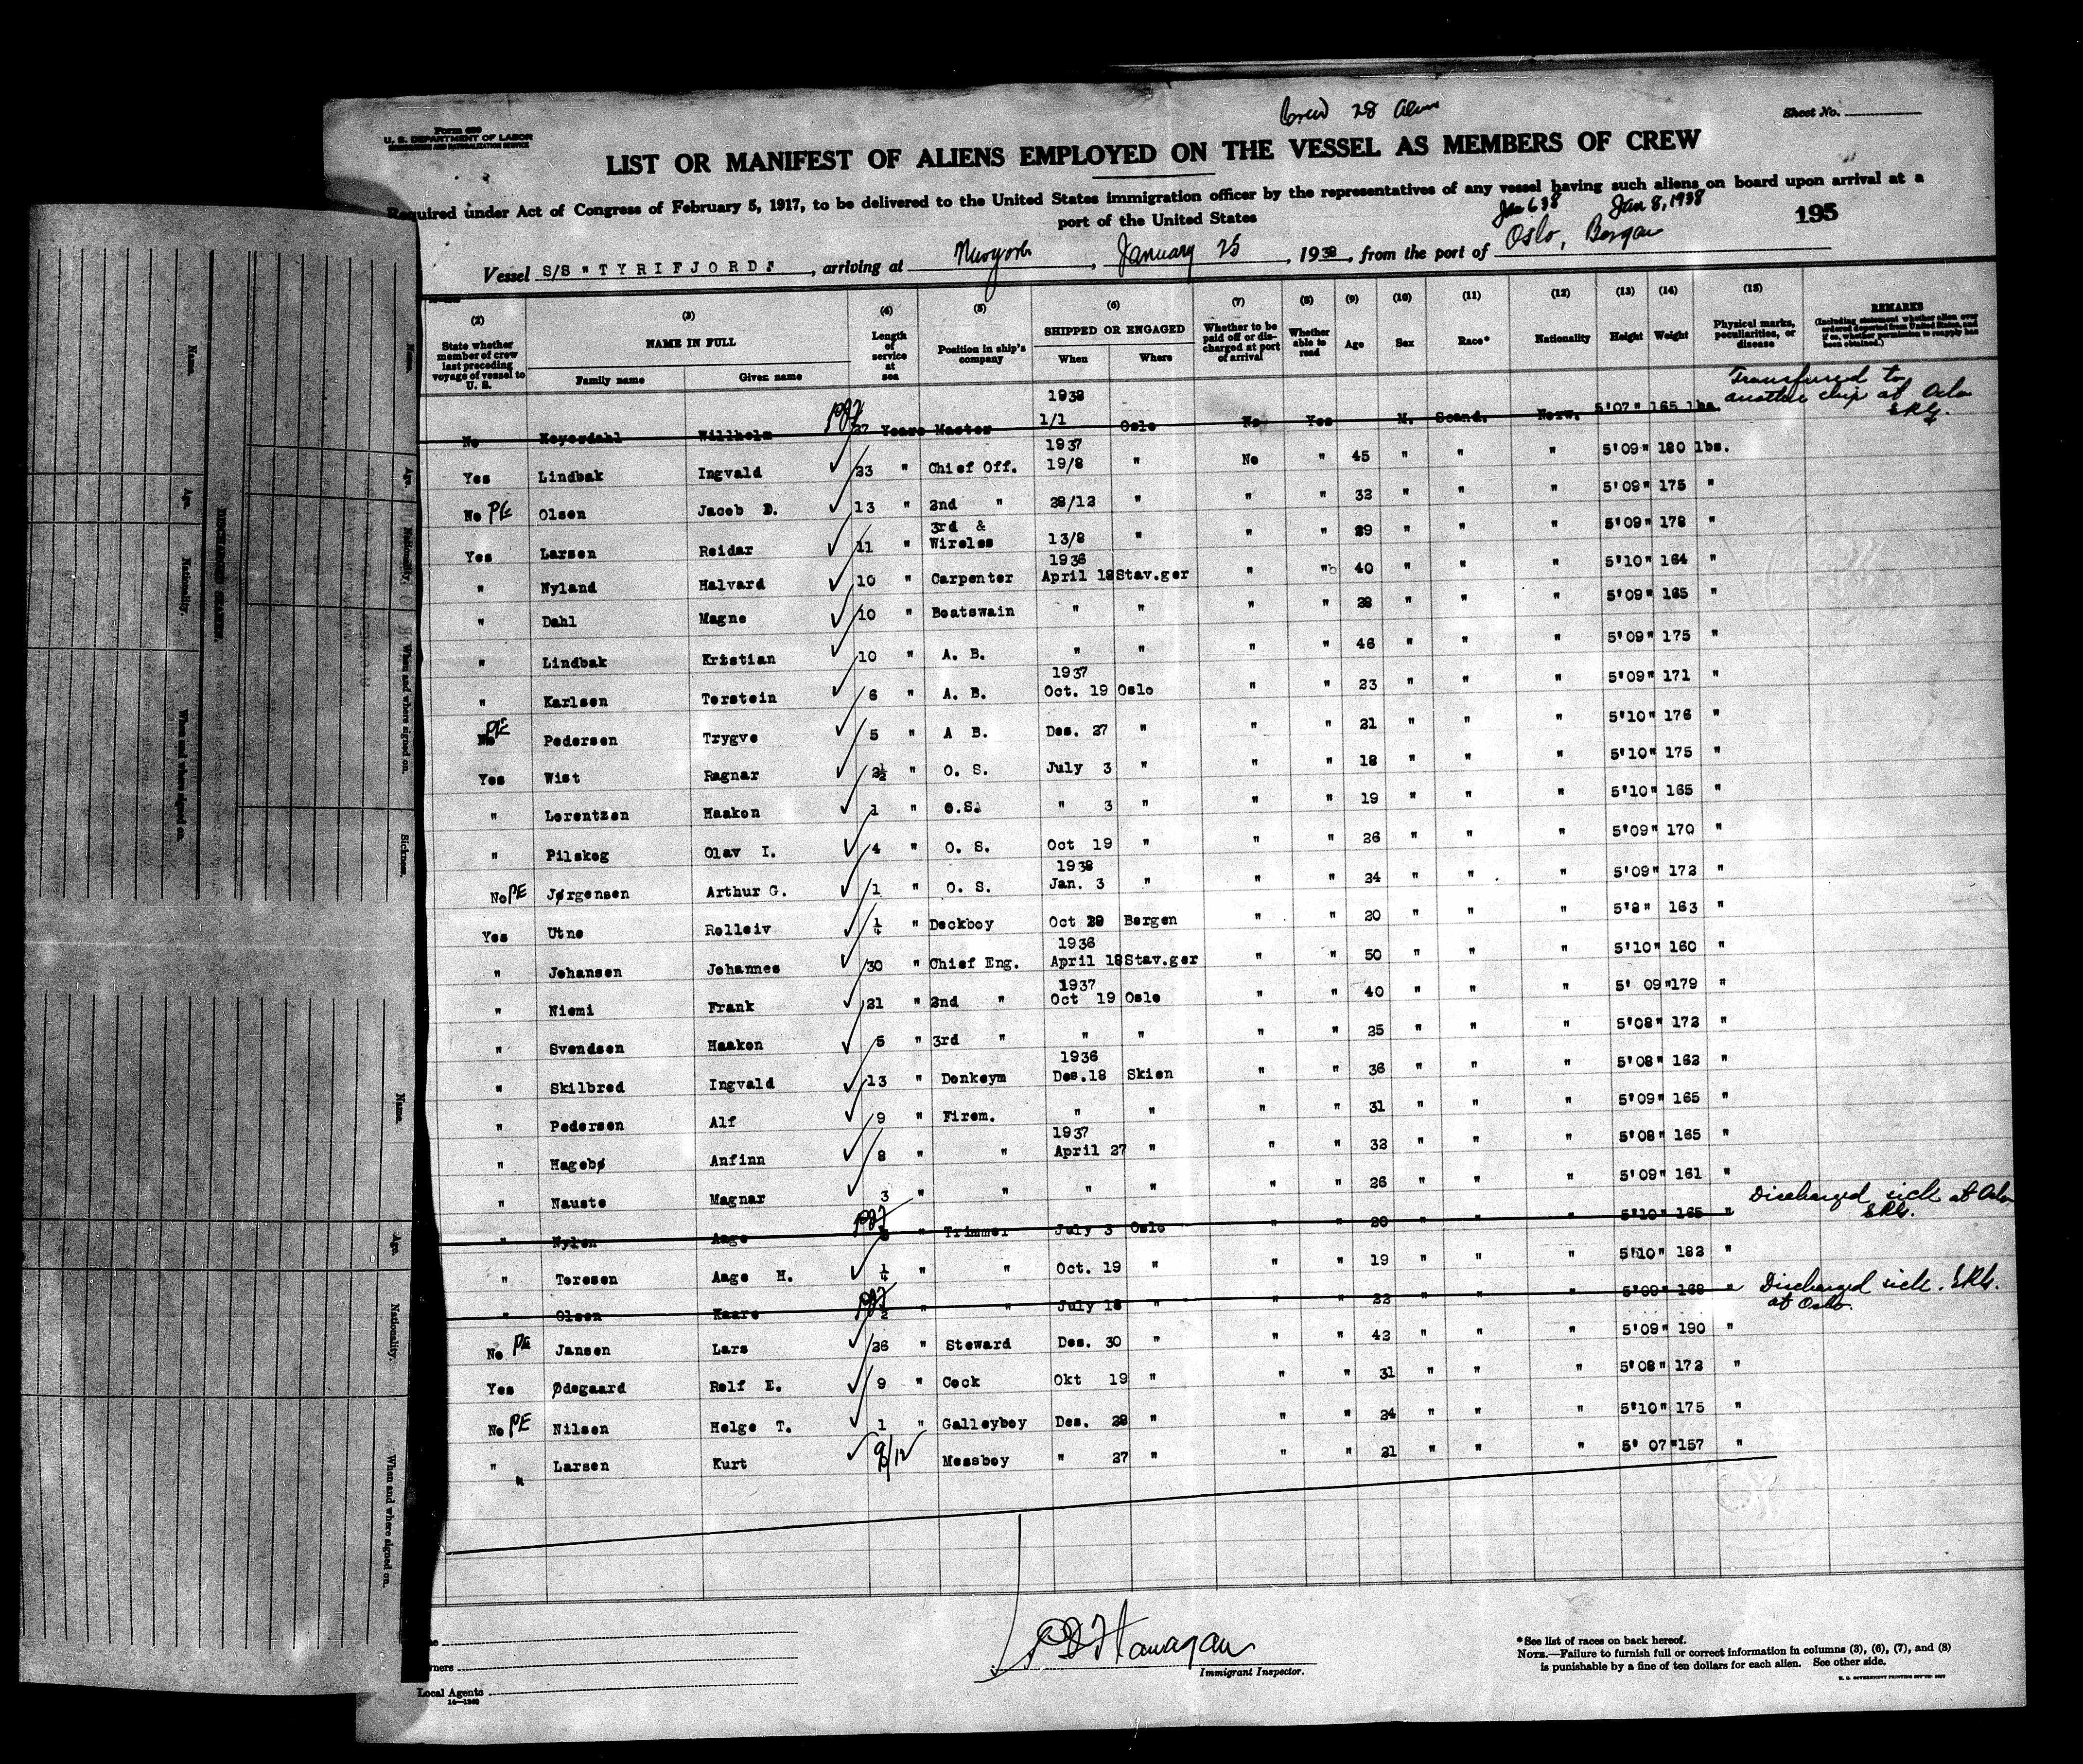 Crew 28 Alien
Sheet No.
Form 680
U. S. DEPARTMENT OF LABOR
IMMIGRATION AND NATURALIZATION SERVICE
LIST OR MANIFEST OF ALIENS EMPLOYED ON THE VESSEL AS MEMBERS OF CREW
Required under Act of Congress of February 5, 1917, to be delivered to the United States immigration officer by the representatives of any vessel having such aliens on board upon arrival at a
port of the United States
Jan 6 38 Jan 8, 1938
195
Vessel S/S "TYRIFJORD", arriving at Newyork, January 25, 1938, from the port of Oslo, Bergen
(2) (3) (4) (5) (6) (7) (8) (9) (10) (11) (12) (13) (14) (15)
State whether member of crew last preceding voyage of vessel to U. S.
NAME IN FULL
Family name Given name
Length of service at sea
Position in ship's company
SHIPPED OR ENGAGED
When Where
Whether to be paid off or discharged at port of arrival
Whether able to read
Age
Sex
Race*
Nationality
Height
Weight
Physical marks, peculiarities, or disease
REMARKS
(Including statement whether alien ever ordered deported from United States, and if so, whether permission to reapply has been obtained.)
1938
No Heyerdahl Willhelm 37 Years Master 1/1 Oslo No Yes M. Scand. Norw. 5'07" 165 lbs. Transferred to another ship at Oslo
1937
Yes Lindbak Ingvald 23 " Chief Off. 19/8 " No " 45 " " " 5'09" 180 lbs.
No PE Olsen Jacob D. 13 " 2nd " 28/12 " " " 32 " " " 5'09" 175 "
3rd &
Yes Larsen Reidar 11 " Wireles 13/8 " " " 29 " " " 5'09" 178 "
1936
" Nyland Halvard 10 " Carpenter April 18 Stav.ger " " 40 " " " 5'10" 164 "
" Dahl Magne 10 " Boatswain " " " " 28 " " " 5'09" 165 "
" Lindbak Kristian 10 " A. B. " " " " 46 " " " 5'09" 175 "
1937
" Karlsen Torstein 6 " A. B. Oct. 19 Oslo " " 23 " " " 5'09" 171 "
No PE Pedersen Trygve 5 " A B. Des. 27 " " " 21 " " " 5'10" 176 "
Yes Wist Ragnar 2½ " O. S. July 3 " " " 18 " " " 5'10" 175 "
" Lorentzen Haakon 1 " O.S. " 3 " " " 19 " " " 5'10" 165 "
" Pilskog Olav I. 4 " O. S. Oct 19 " " " 26 " " " 5'09" 170 "
1938
No PE Jørgensen Arthur G. 1 " O. S. Jan. 3 " " " 24 " " " 5'09" 172 "
Yes Utne Rolleiv ¼ " Deckboy Oct 29 Bergen " " 20 " " " 5'8" 163 "
1936
" Johansen Johannes 30 " Chief Eng. April 18 Stav.ger " " 50 " " " 5'10" 160 "
1937
" Niemi Frank 21 " 2nd " Oct 19 Oslo " " 40 " " " 5' 09" 179 "
" Svendsen Haakon 5 " 3rd " " " " " 25 " " " 5'08" 172 "
1936
" Skilbred Ingvald 13 " Donkeym Des.18 Skien " " 36 " " " 5'08" 162 "
" Pedersen Alf 9 " Firem. " " " " 31 " " " 5'09" 165 "
1937
" Hagebø Anfinn 8 " " April 27 " " " 32 " " " 5'08" 165 "
" Nauste Magnar 3 " " " " " " 26 " " " 5'09" 161 "
" Nylen Aage " Trimmer July 3 Oslo " " 20 " " " 5'10" 165 " Discharged sick at Oslo
" Toresen Aage H. ¼ " " Oct. 19 " " " 19 " " " 5'10" 182 "
" Olsen Kaare ½ " " July 18 " " " 22 " " " 5'09" 168 " Discharged sick at Oslo.
No PE Jansen Lars 26 " Steward Des. 30 " " " 42 " " " 5'09" 190 "
Yes Ødegaard Rolf E. 9 " Cock Okt 19 " " " 31 " " " 5'08" 172 "
No PE Nilsen Helge T. 1 " Galleyboy Des. 28 " " " 24 " " " 5'10" 175 "
" " Larsen Kurt 9/12 Messboy " 27 " " " 21 " " " 5' 07" 157 "
Flanagan
Immigrant Inspector.
Local Agents
14—1240
*See list of races on back hereof.
NOTE.—Failure to furnish full or correct information in columns (3), (6), (7), and (8)
is punishable by a fine of ten dollars for each alien. See other side.
Name. Age. Nationality. When and where signed on.
Name. Age. Nationality. When and where signed on. Sickness.
DISCHARGED SEAMEN
Name. Age. Nationality. When and where signed on.